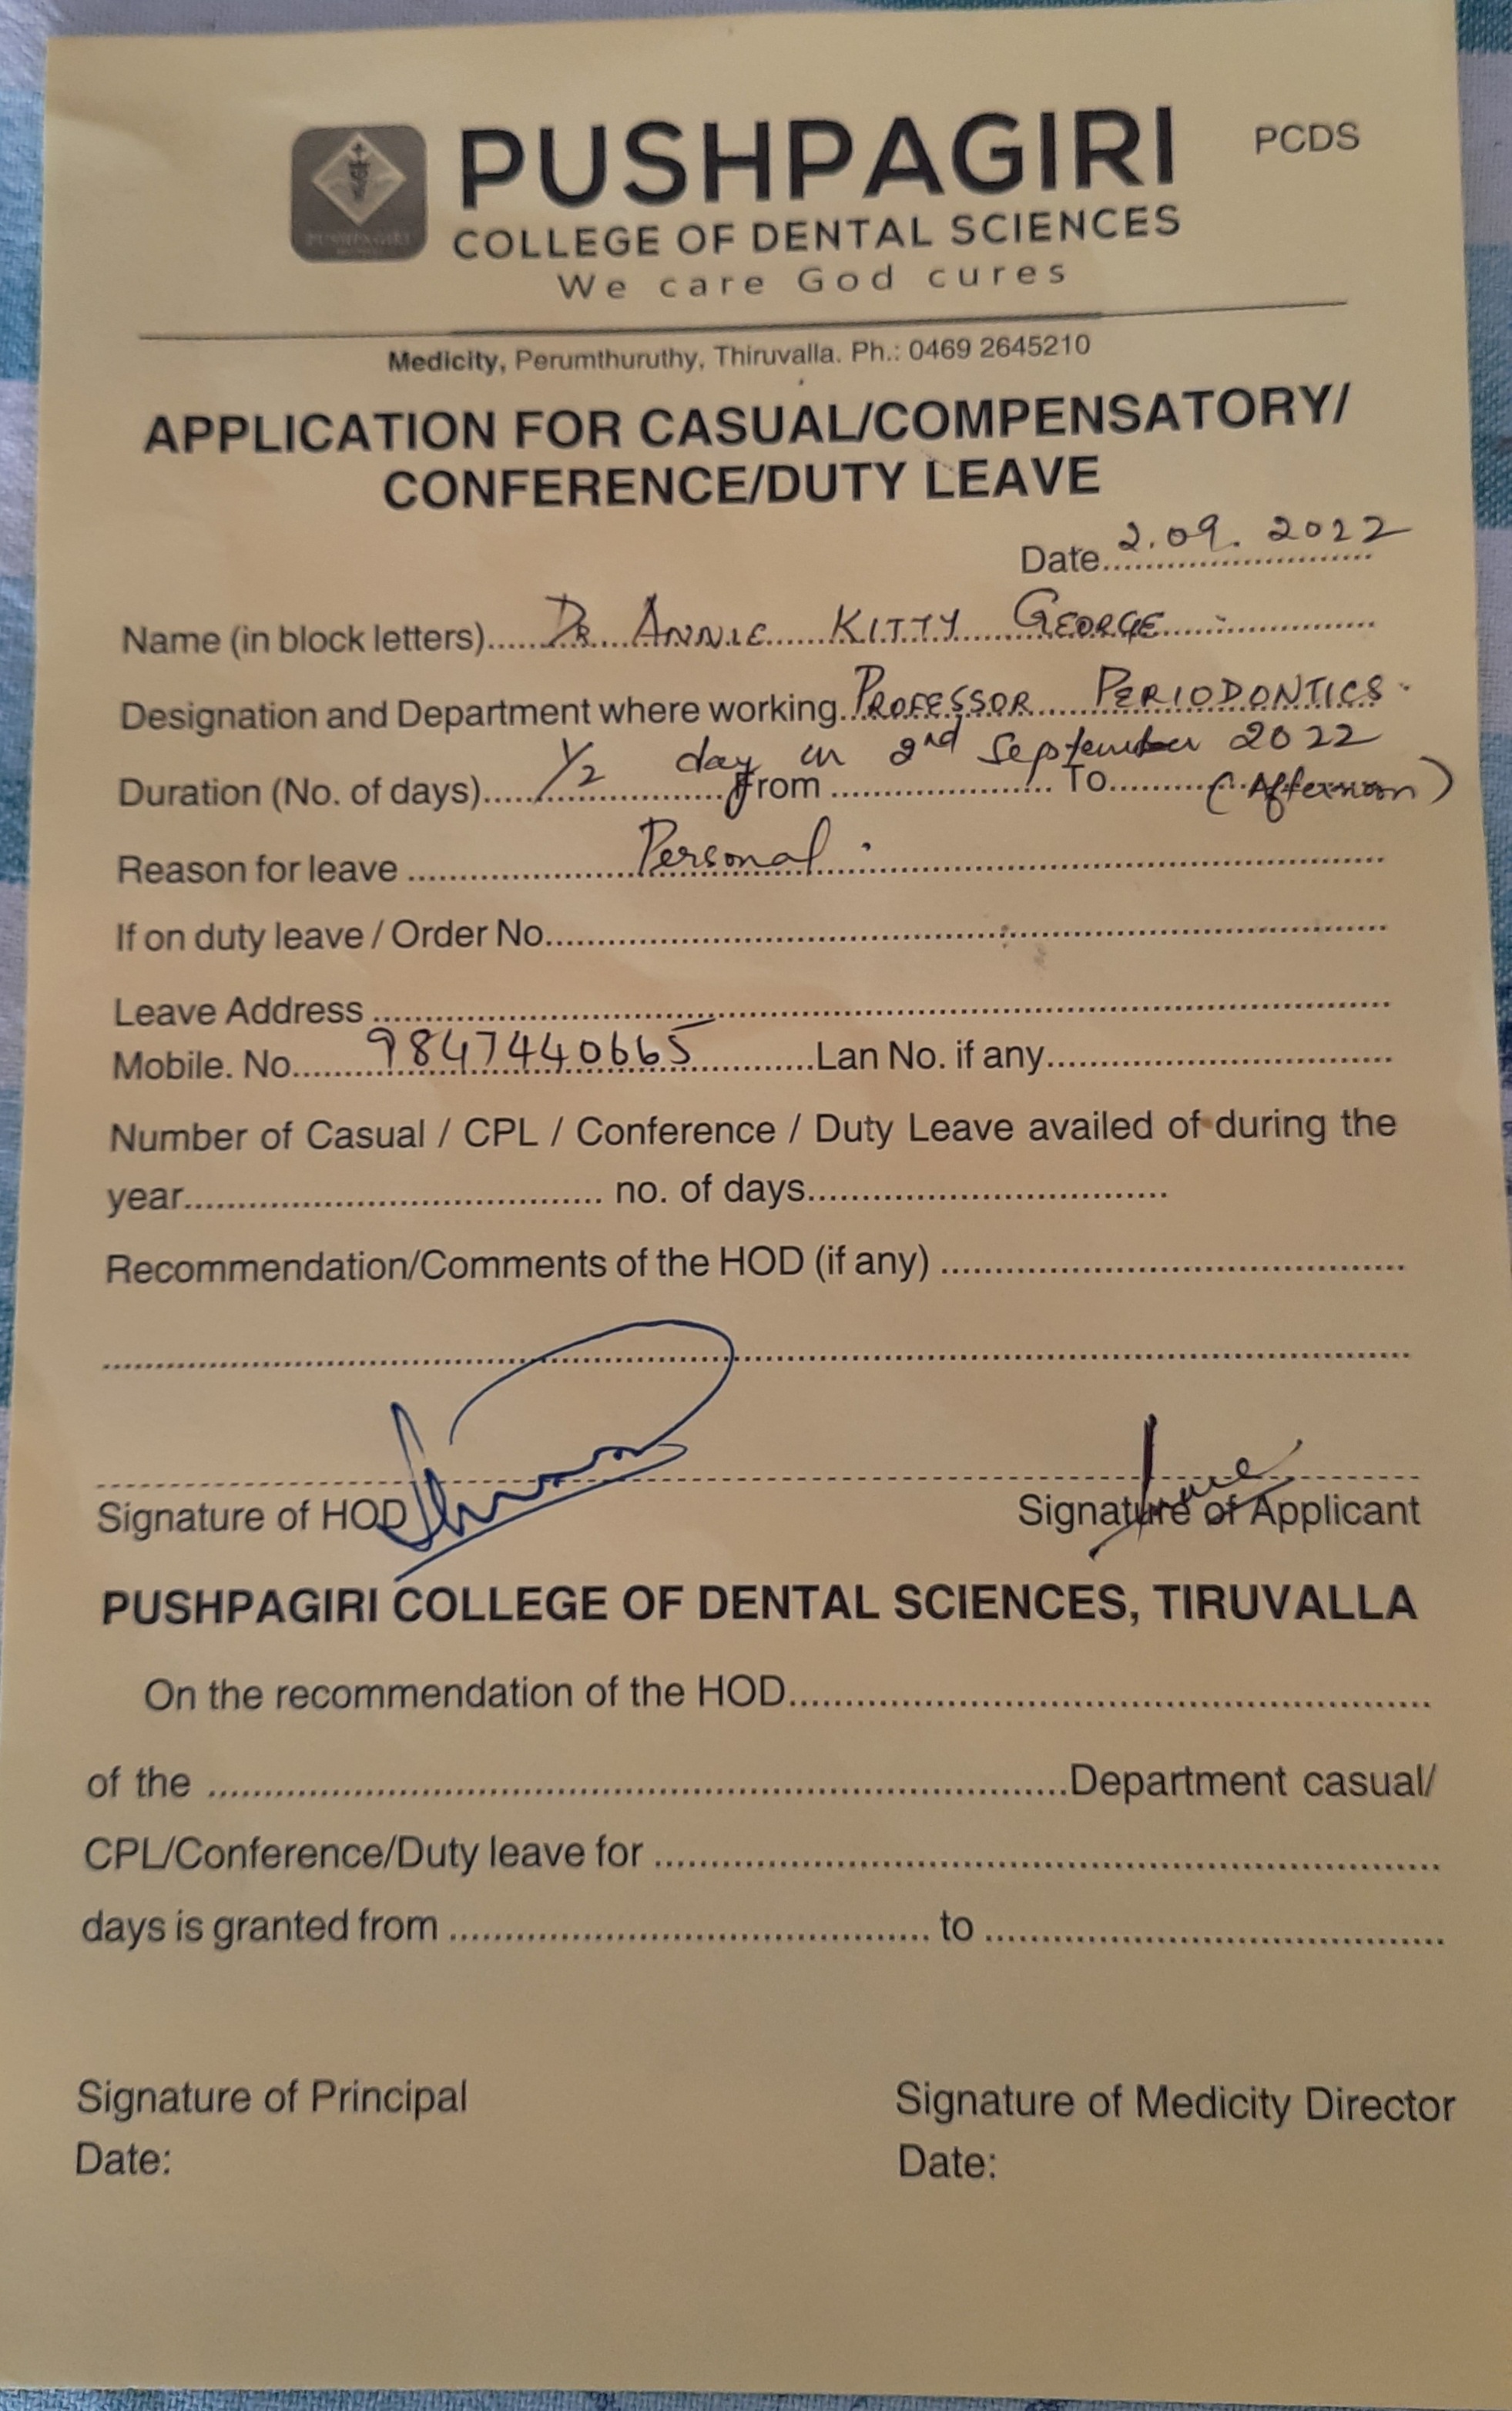 PUSHPAGIRI PCDS
COLLEGE OF DENTAL SCIENCES
We care God cures
Medicity, Perumthuruthy, Thiruvalla. Ph.: 0469 2645210
APPLICATION FOR CASUAL/COMPENSATORY/
CONFERENCE/DUTY LEAVE
Date 2.09.2022
Name (in block letters) DR ANNIE KITTY GEORGE
Designation and Department where working PROFESSOR PERIODONTICS
Duration (No. of days) 1/2 day on 2nd September 2022 From To (Afternoon)
Reason for leave Personal
If on duty leave / Order No.
Leave Address
Mobile. No. 9847440665 Lan No. if any
Number of Casual / CPL / Conference / Duty Leave availed of during the
year no. of days
Recommendation/Comments of the HOD (if any)
Signature of HOD Signature of Applicant
PUSHPAGIRI COLLEGE OF DENTAL SCIENCES, TIRUVALLA
On the recommendation of the HOD
of the Department casual/
CPL/Conference/Duty leave for
days is granted from to
Signature of Principal Signature of Medicity Director
Date: Date: